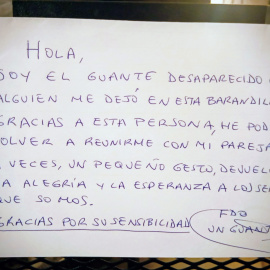 HOLA,
OY EL GUANTE DESAPARECIDO
ALGUIEN ME DEJÓ EN ESTA BARANDIL
GRACIAS A ESTA PERSONA, HE POD
OLVER A REUNIRME CON MI PAREJA
VECES, UN PEQUEÑO GESTO, DEVUEL
A ALEGRÍA Y LA ESPERANZA A LOS SE
QUE SOMOS.
GRACIAS POR SU SENSIBILIDAD
FDO
UN GUANT